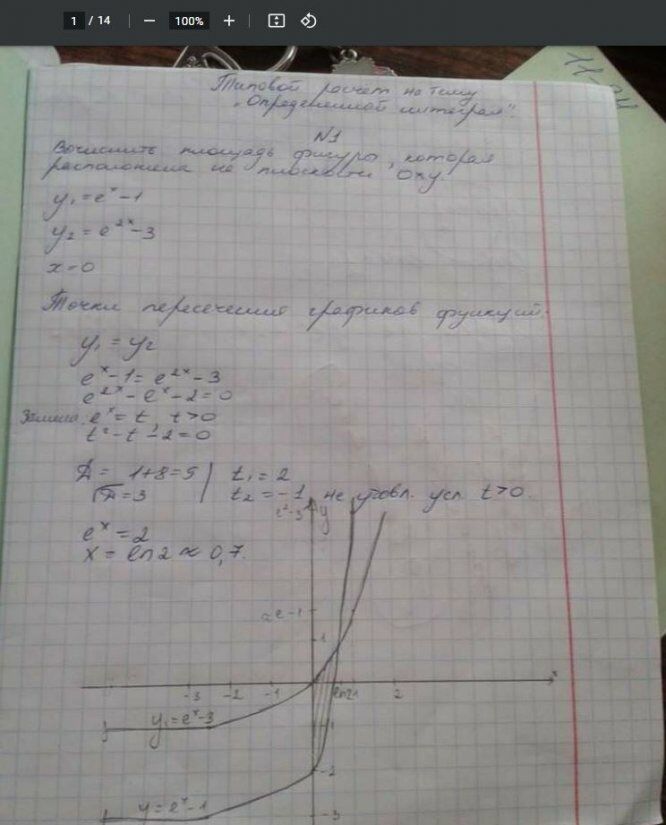 1 / 14
100%
Типовой расчет на тему
"Определенной интеграл".
N1
Вычислить площадь фигуры, которая
расположена на плоскости Oxy.
y₁ = eˣ - 1
y₂ = e²ˣ - 3
x = 0
Точки пересечения графиков функций.
y₁ = y₂
eˣ - 1 = e²ˣ - 3
e²ˣ - eˣ - 2 = 0
Замена: eˣ = t, t > 0
t² - t - 2 = 0
Д = 1+8=9 | t₁ = 2
√Д = 3 | t₂ = -1 не удовл. усл t>0.
eˣ = 2
x = ln2 ≈ 0,7.
e²-3 y
e-1
1
-3 -2 -1 ln2 1 2 x
y₁ = eˣ-3
-1
-2
y = eˣ-1
-3